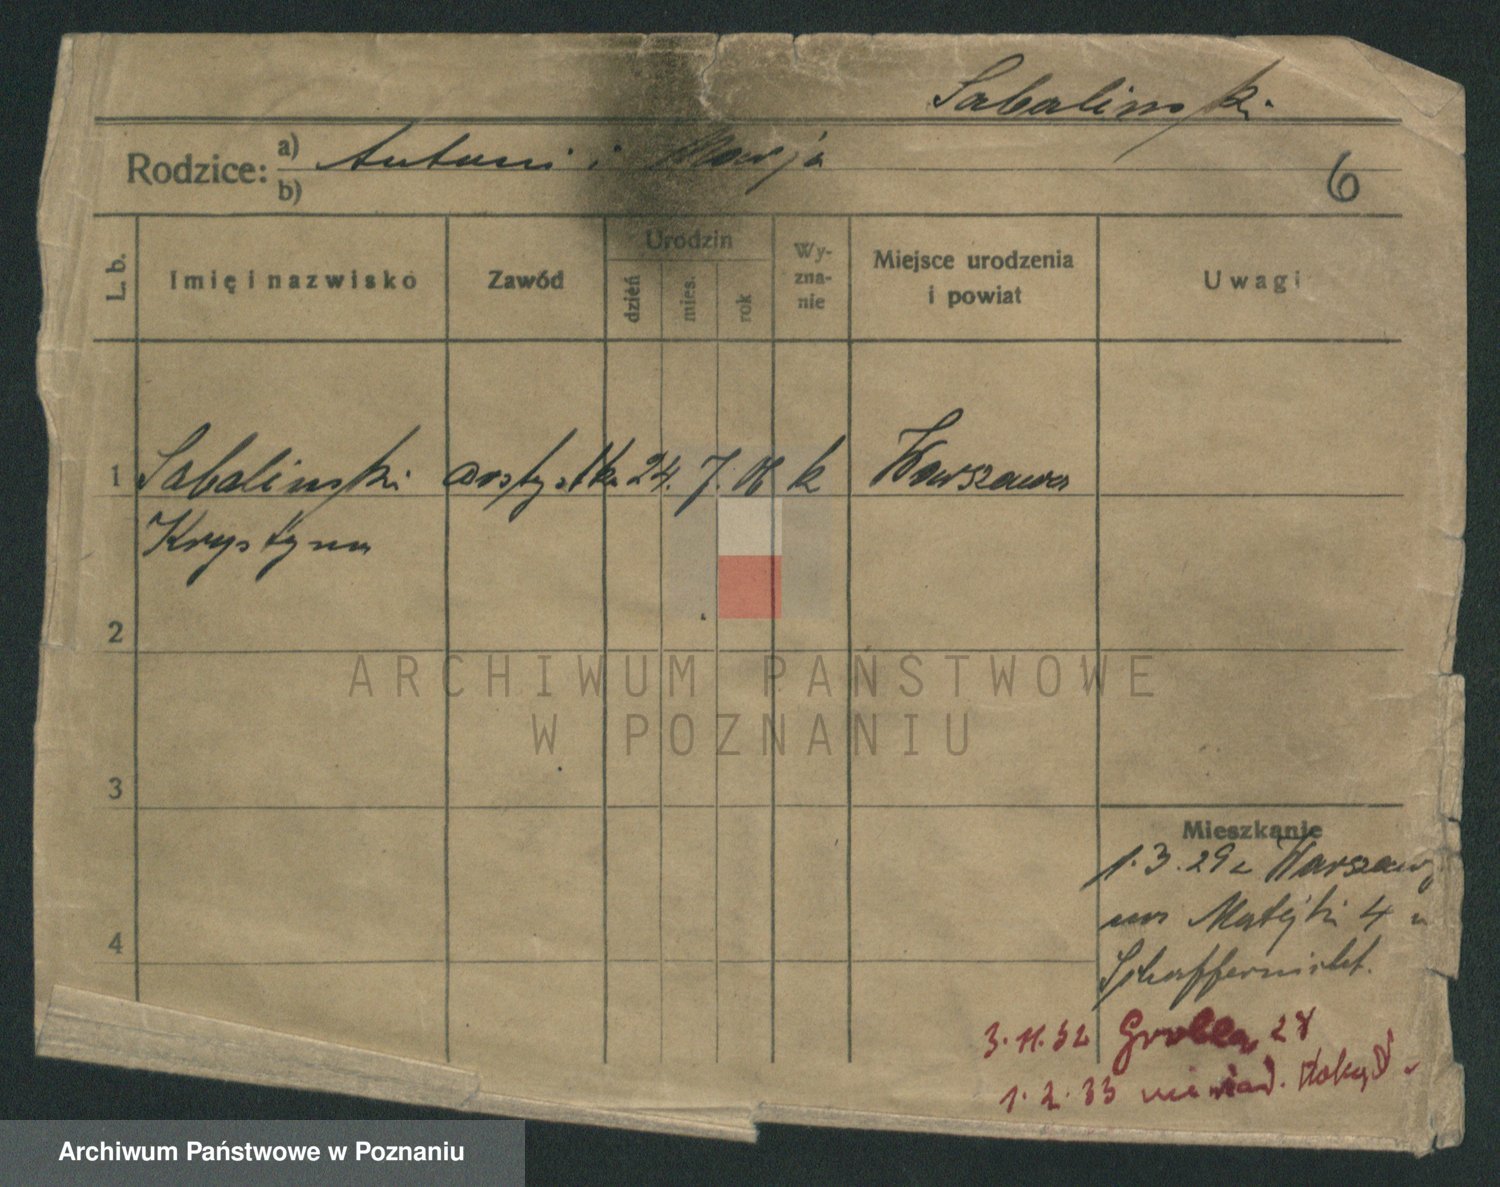 Sabalinski
Rodzice: a) Antoni i Marja
b)
6
L. b.
Imię i nazwisko
Zawód
Urodzin
dzień
mies.
rok
Wy-
zna-
nie
Miejsce urodzenia
i powiat
Uwagi
1 Sabalinski artystka 24. 7. k Warszawa
Krystyna
2
3
4
Mieszkanie
1.3.29 z Warszawy
Matejki 4 u
3.11.32 Grobla 28
1.2.33
ARCHIWUM PAŃSTWOWE
W POZNANIU
Archiwum Państwowe w Poznaniu